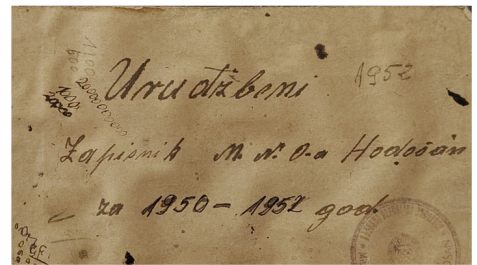 Urudžbeni
1952
Zapisnik M. N. O-a Hodošan
za 1950 – 1952 god.